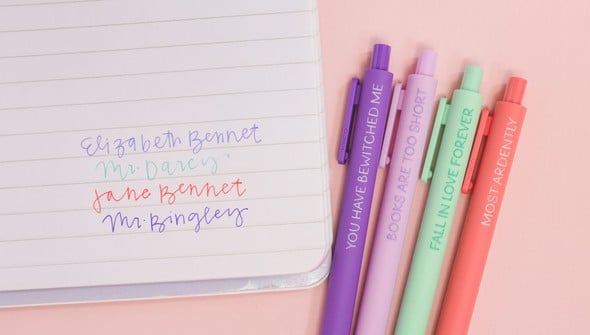 Elizabeth Bennet
Mr. Darcy
Jane Bennet
Mr. Bingley
YOU HAVE BEWITCHED ME
BOOKS ARE TOO SHORT
FALL IN LOVE FOREVER
MOST ARDENTLY